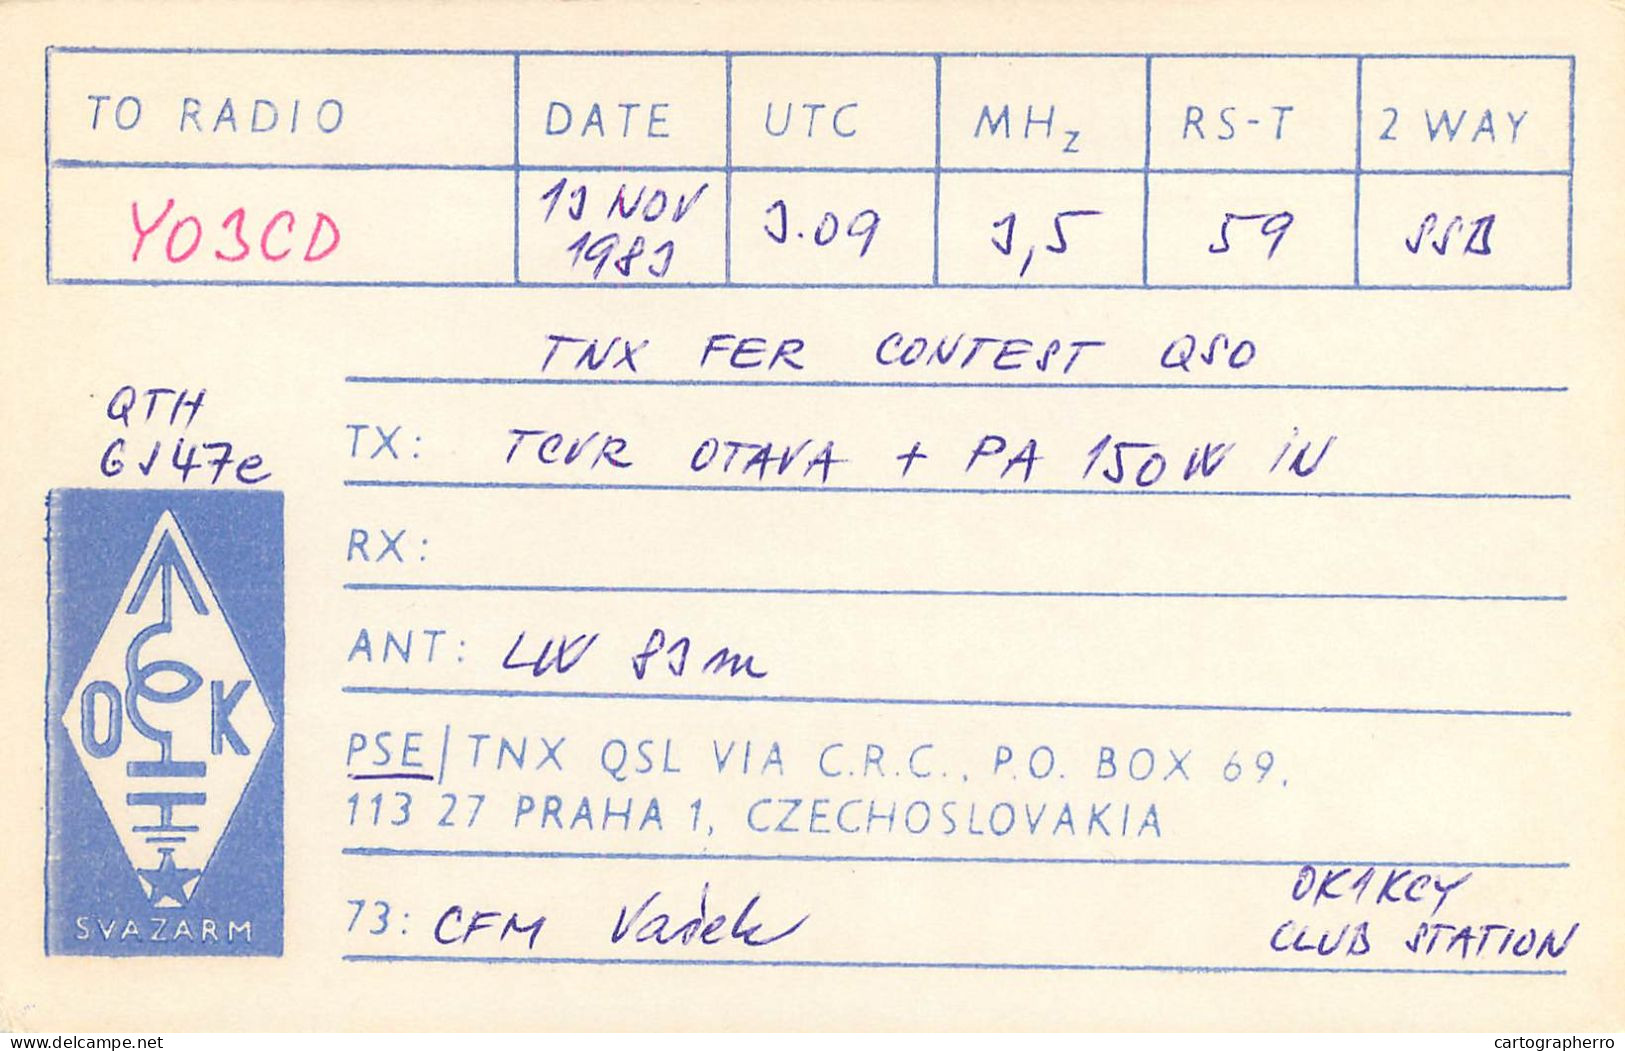 TO RADIO DATE UTC MHz RS-T 2 WAY
YO3CD 13 NOV 1983 3.09 3,5 59 SSB
TNX FER CONTEST QSO
QTH
GJ47e
TX: TCVR OTAVA + PA 150W IN
RX:
ANT: LW 83m
OK
SVAZARM
PSE/TNX QSL VIA C.R.C., P.O. BOX 69,
113 27 PRAHA 1, CZECHOSLOVAKIA
73: CFM Vašek
OK1KCY
CLUB STATION
delcampe.net
cartographerro